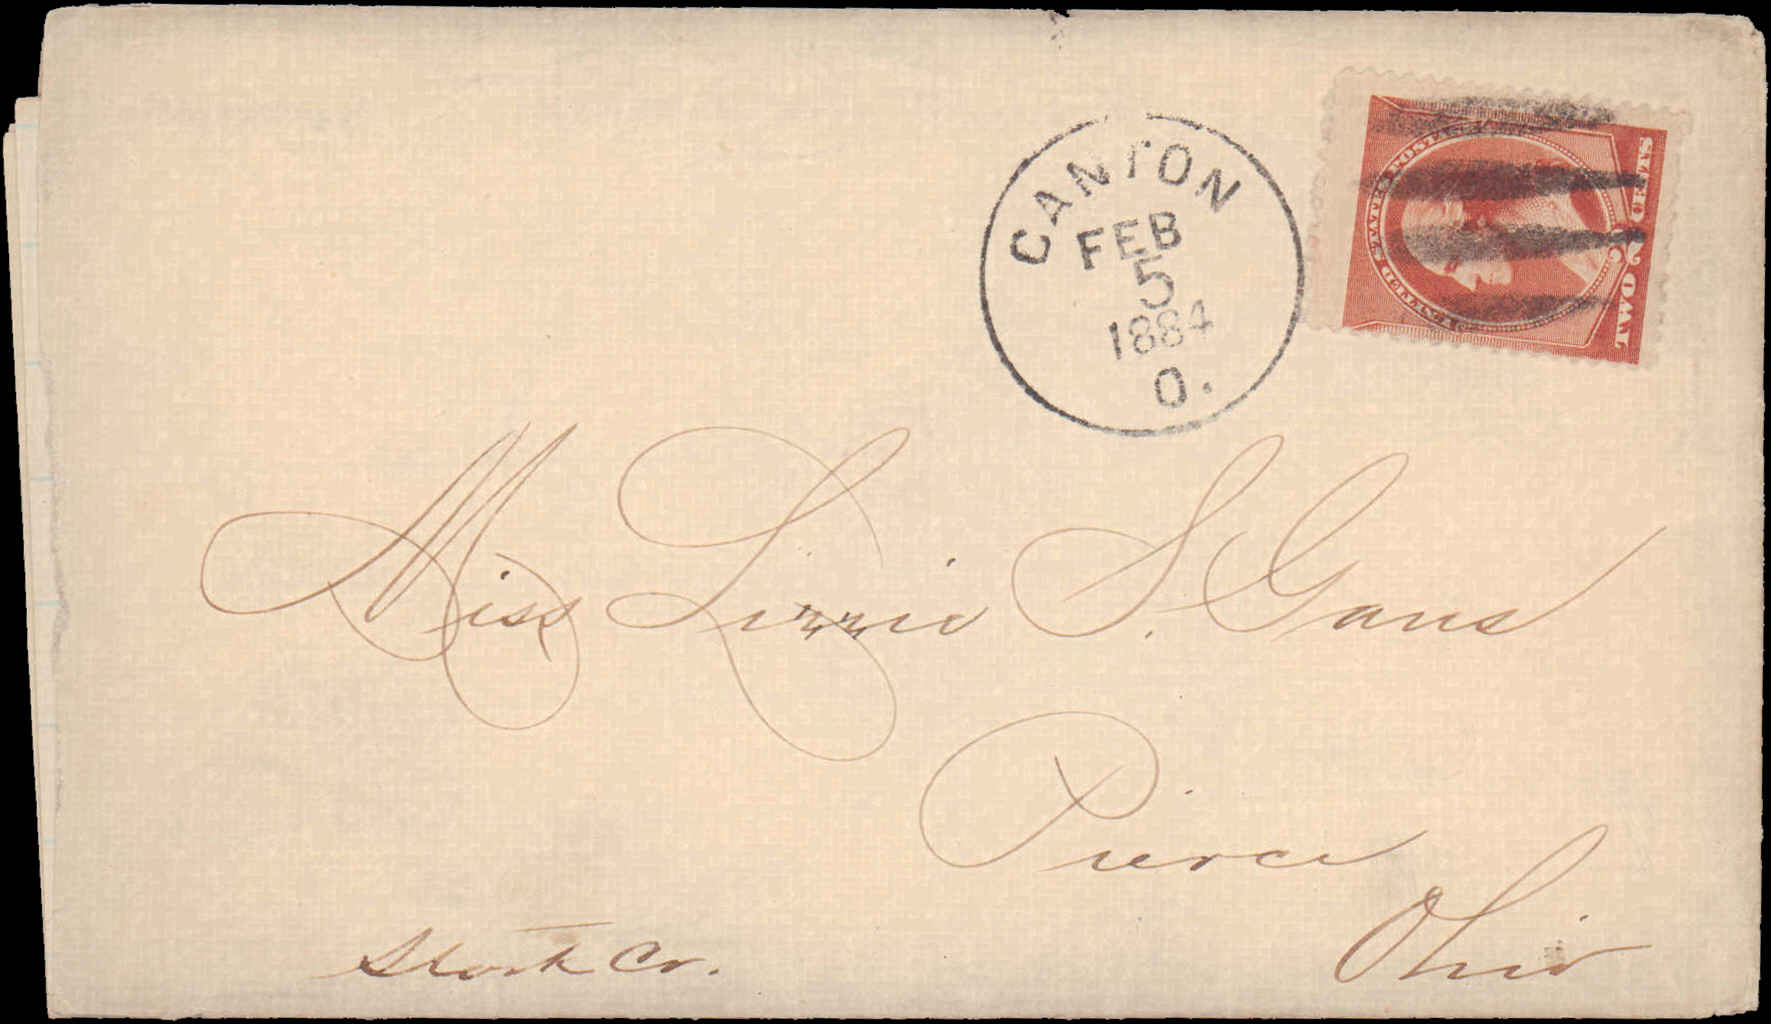 CANTON
FEB
5
1884
O.
UNITED STATES POSTAGE
TWO 2 CENTS
Miss Lizzie S. Gans
Pierce
Stark Co.
Ohio